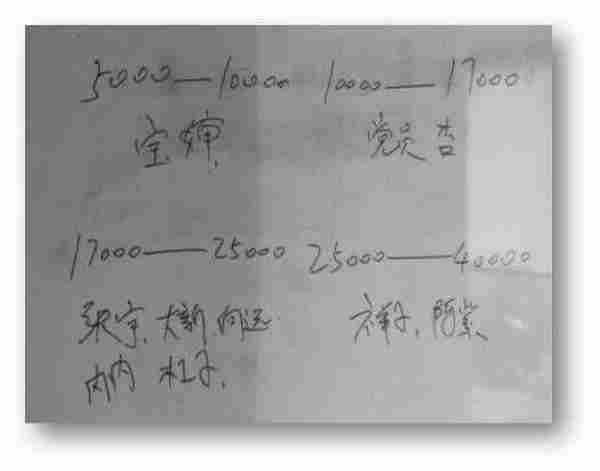 5000—10000 10000—17000
宝婶 党员 杏
17000—25000 25000—40000
宇、大新、向远 祥子、阿紫
内内 杠子、